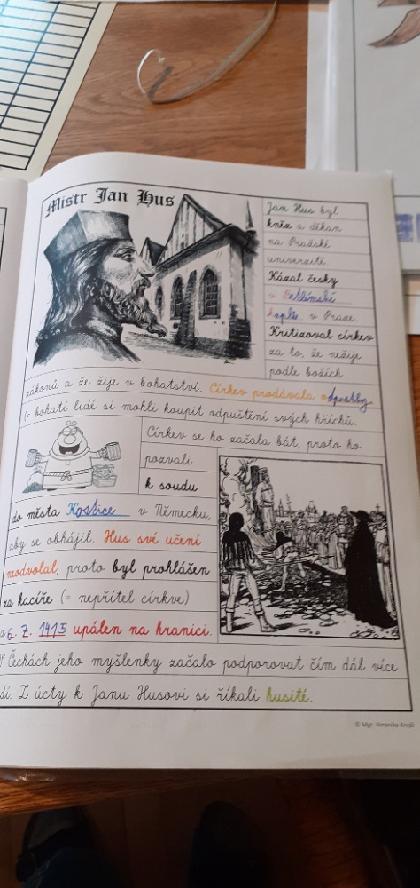 Mistr Jan Hus
Jan Hus byl
kněz a děkan
na Pražské
univerzitě.
Kázal česky
v Betlémské
kapli v Praze.
Kritizoval církev
za to, že nežije
podle božích
zákonů a že žije v bohatství. Církev prodávala odpustky
(= bohatí lidé si mohli koupit odpuštění svých hříchů.
Církev se ho začala bát, proto ho
pozvali
k soudu
do města Kostnice v Německu,
aby se obhájil. Hus své učení
neodvolal, proto byl prohlášen
za kacíře (= nepřítel církve)
a 6. 7. 1415 upálen na hranici.
V Čechách jeho myšlenky začalo podporovat čím dál více
lidí. Z úcty k Janu Husovi se říkali husité.